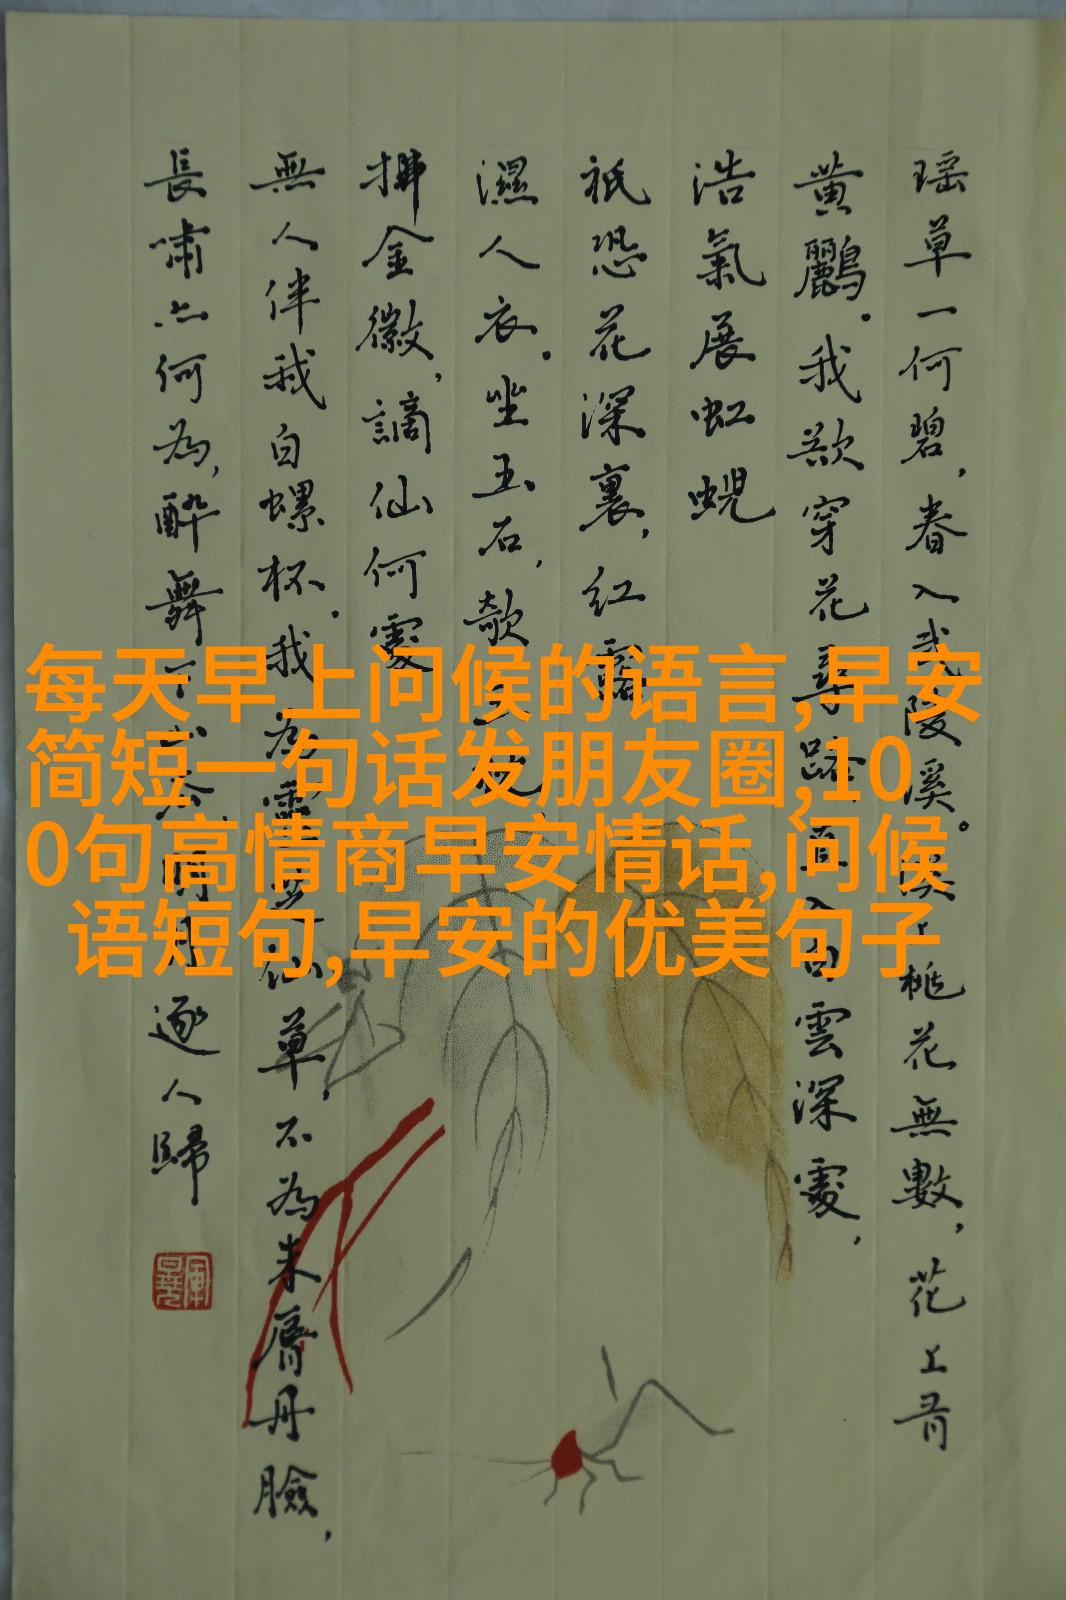 瑶草一何碧，春入武陵溪。溪上桃花無數，花上有
黄鸝。我欲穿花尋路，直入白雲深處，
浩氣展虹蜺
祇恐花深裏，紅露
濕人衣。坐玉石，欹玉枕，
拂金徽，謫仙何處
無人伴我白螺杯。我為靈芝仙草，不為朱脣丹臉，
長嘯亦何為，醉舞下山去，明月逐人歸
每天早上问候的语言,早安
简短一句话发朋友圈,10
0句高情商早安情话,问候
语短句,早安的优美句子